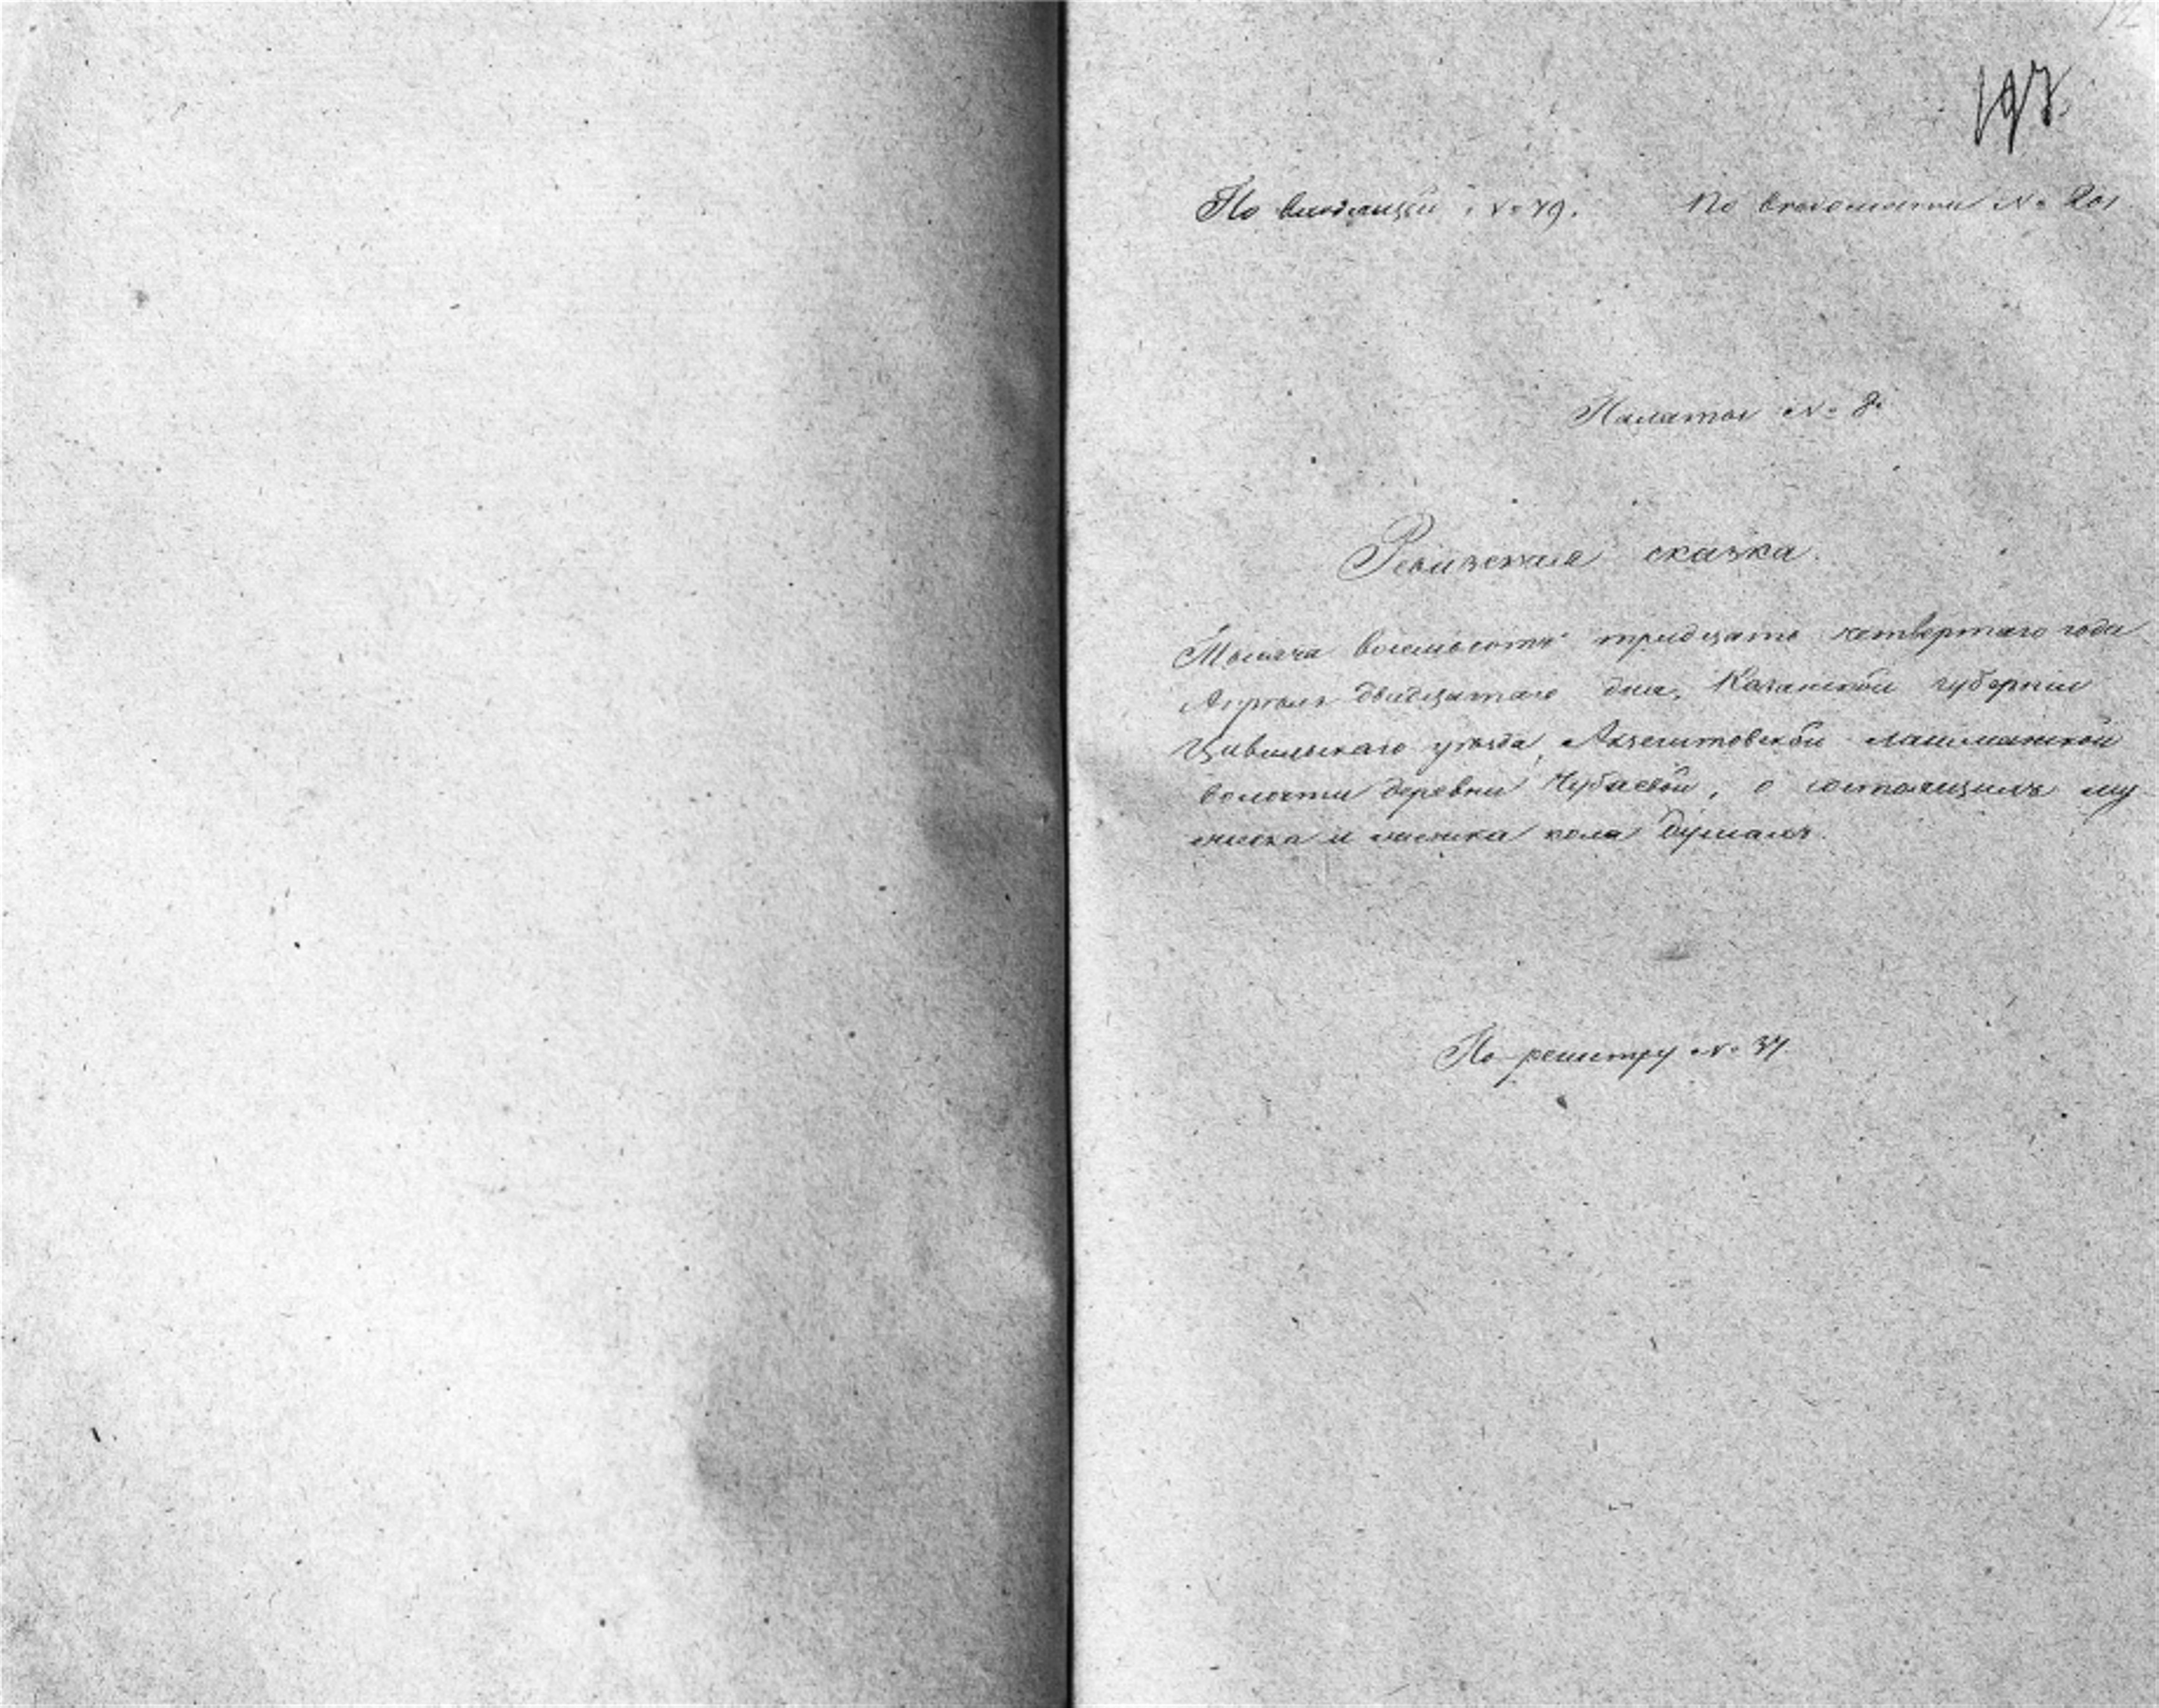 12
197
По входящей № 79. По вѣдомости № 201
Палаты № 8.
Ревизская сказка.
Тысяча восемьсотъ тридцать четвертаго года
Апрѣля двадцатаго дня, Казанской губерніи
Цивильскаго уѣзда, Акзегитовской лашманской
волости деревни Чубаевой, о состоящихъ му
жеска и женска пола душахъ.
По регистру № 37.